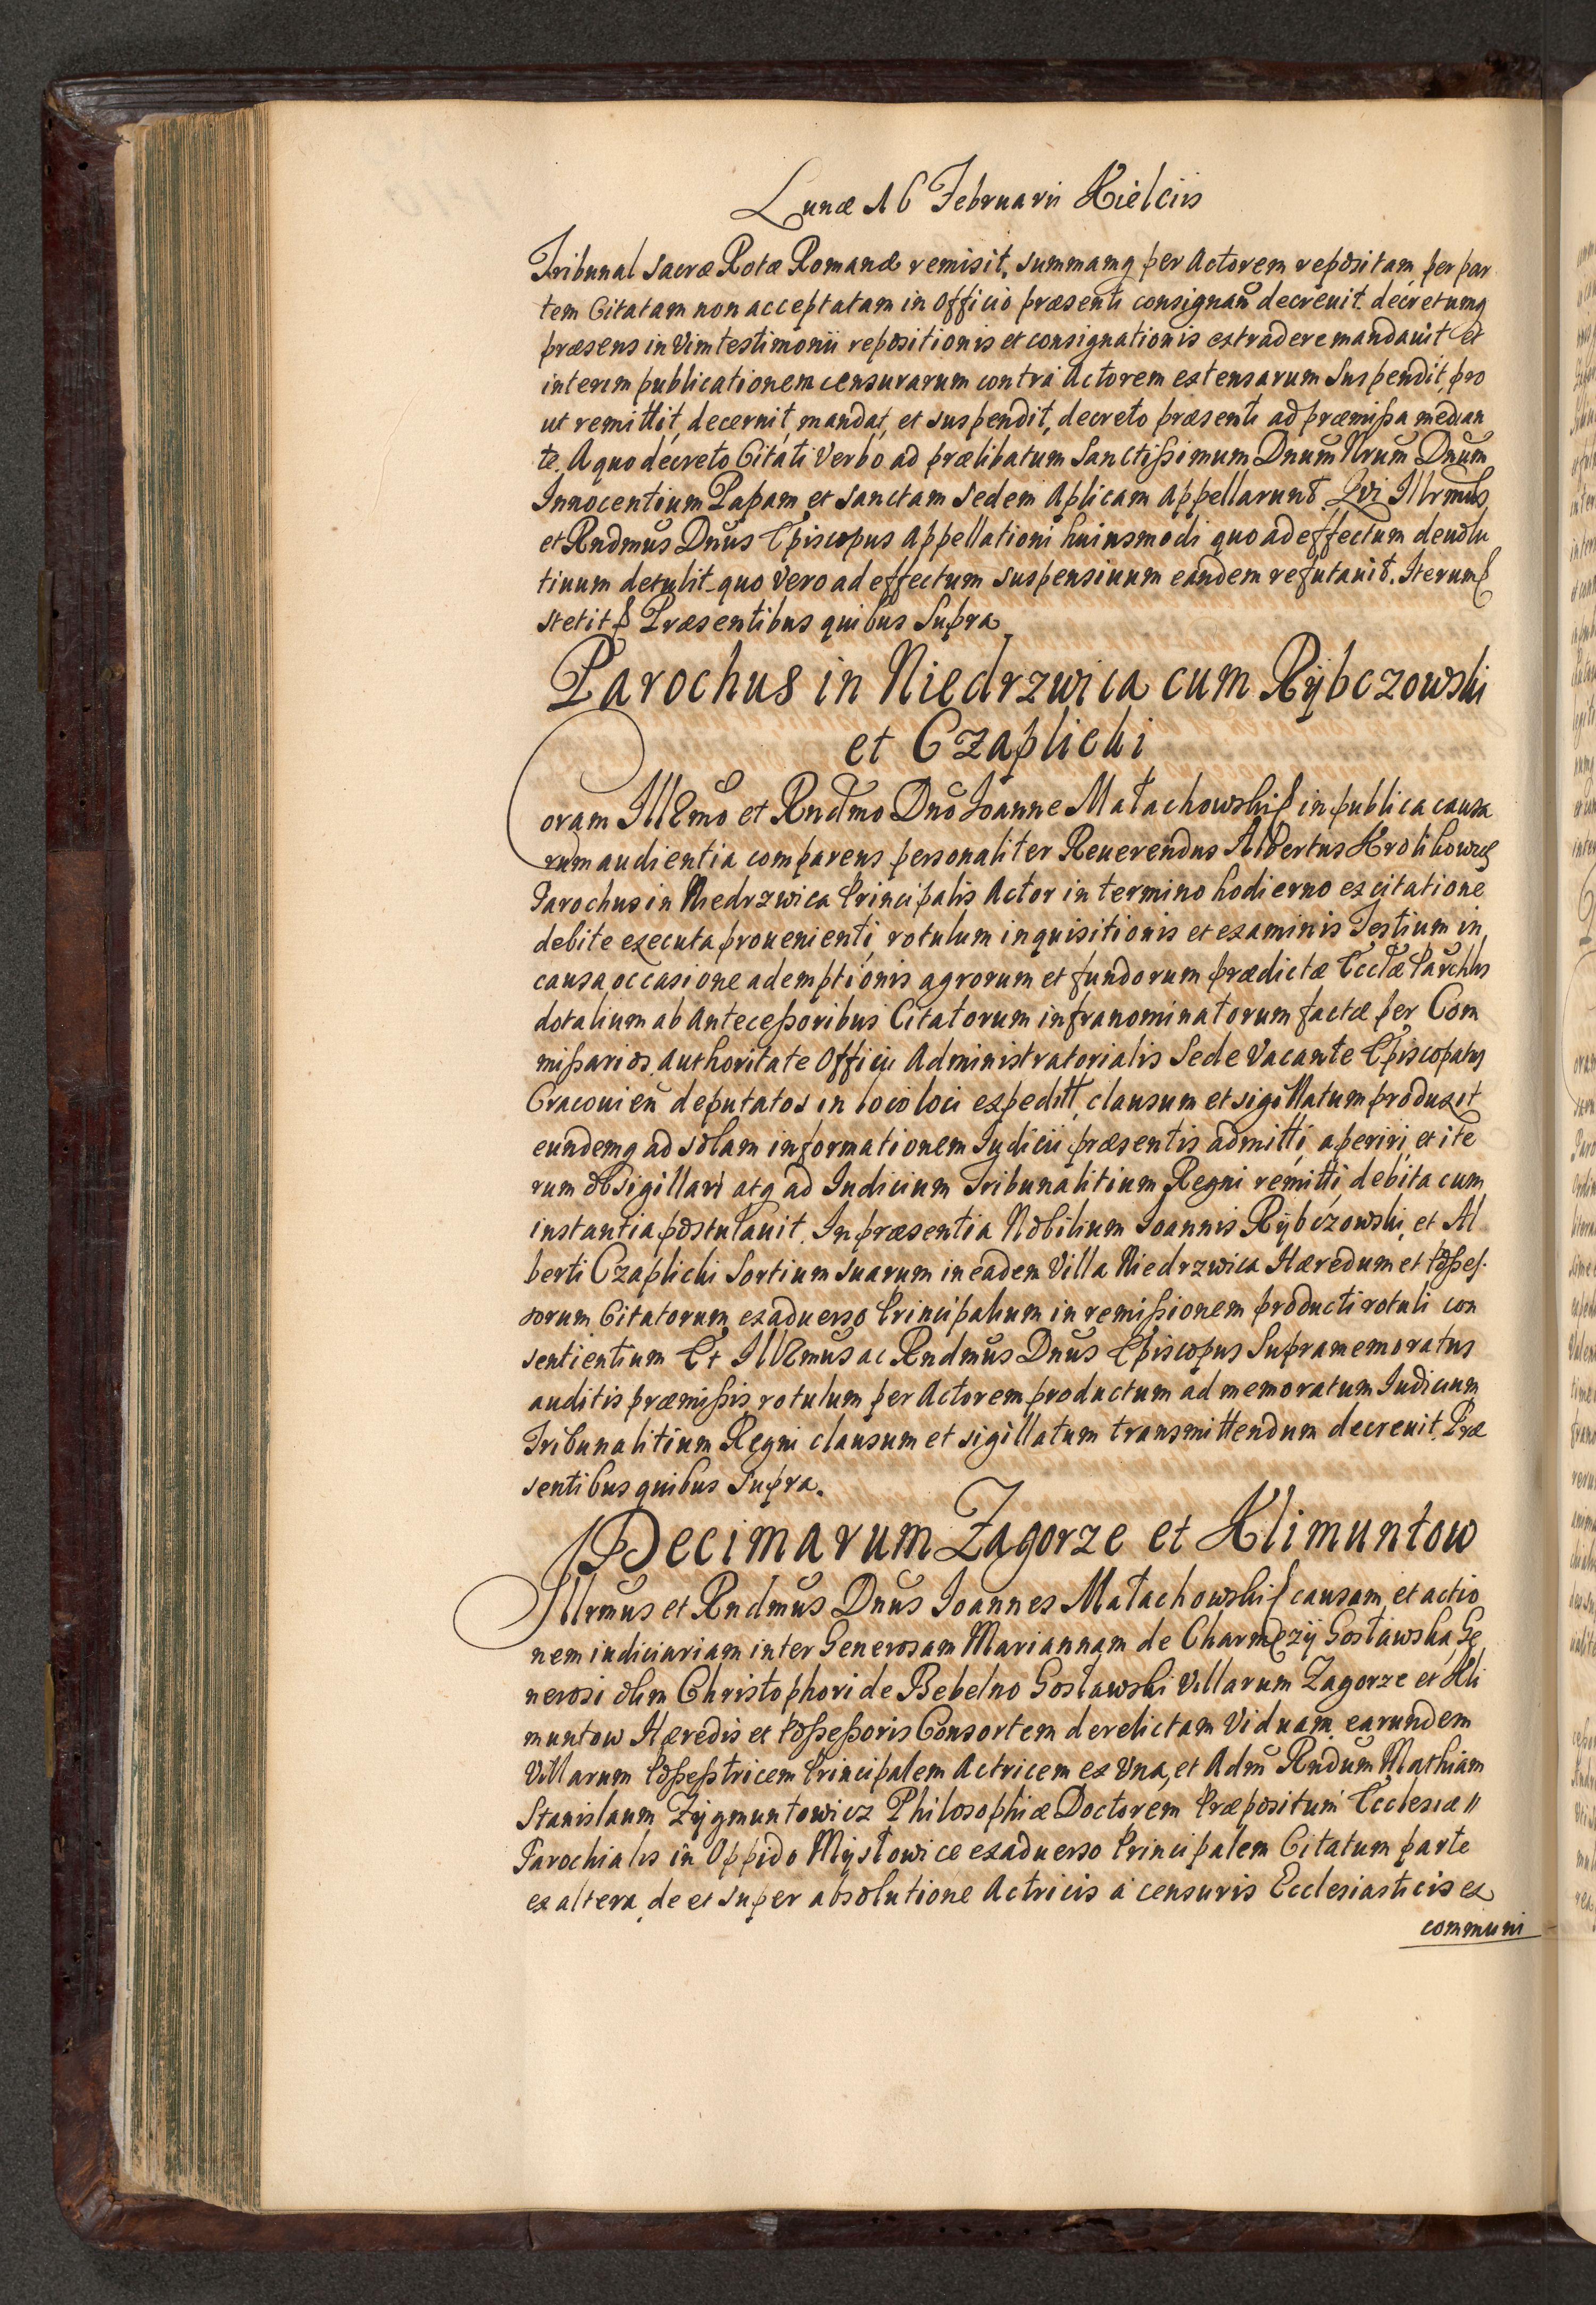 Lunæ 16 Februarii Kielciis
Tribunal Sacræ Rotæ Romanæ remisit, summamq per Actorem repositam per par
tem Citatam non acceptatam in Officio præsenti consignañ decreuit decretumq
præsens in Vim testimonii repositionis et consignationis extradere mandauit et
interim publicationem censurarum contra Actorem extensarum Suspendit, pro
ut remittit, decernit, mandat, et suspendit, decreto præsenti ad præmissa median
te. A quo decreto Citati Verbo ad prælibatum Sanctissimum Dnum Nrum Dnum
Innocentium Papam et sanctam Sedem Aplicam Appellarunt Qui Illrmus
et Rndmus Dnus Episcopus Appellationi huiusmodi quo ad effectum deuolu
tiuum detulit quo vero ad effectum suspensiuum eandem refutauit. Iterum
stetit Præsentibus quibus Supra
Parochus in Niedrzwica cum Rÿbczowski
et Czaplicki
Coram Illmo et Rndmo Dno Ioanne Małachowski in publica causa
rum audientia comparens personaliter Reuerendus Albertus Krolikowicz
Parochus in Niedrzwica Principalis Actor in termino hodierno ex citatione
debite executa prouenienti, rotulum inquisitionis et examinis Testium in
causa occasione ademptionis agrorum et fundorum prædictæ Ecclæ Parchlis
dotalium ab Antecessoribus Citatorum infranominatorum factæ per Com
missarios authoritate Officii Administratorialis Sede Vacante Episcopatus
Cracouień deputatos in loco loci expeditt, clausum et sigillatum produxit
eundemq ad solam informationem Iudicii præsentis admitti, aperiri, et ite
rum obsigillari atq ad Iudicium Tribunalitium Regni remitti, debita cum
instantia postulauit. In præsentia Nobilium Ioannis Rÿbczowski, et Al
berti Czaplicki Sortium suarum in eadem Villa Niedrzwica Hæredum et Posses
sorum Citatorum ex aduerso Principalium in remissionem producti rotuli con
sentientium Et Illmus ac Rndmus Dnus Episcopus Supramemoratus
auditis præmissis rotulum per Actorem productum ad memoratum Iudicium
Tribunalitium Regni clausum et sigillatum transmittendum decreuit. Præ
sentibus quibus Supra.
Decimarum Zagorze et Klimuntow
Illrmus et Rndmus Dnus Ioannes Małachowski causam et actio
nem iudiciariam inter Generosam Mariannam de Charmęzÿ Gosławska, Ge
nerosi olim Christophori de Bebelno Gosławski Villarum Zagorze et Kli
muntow Hæredis et Possessoris Consortem derelictam Viduam earundem
Villarum Possesstricem Principalem Actricem ex Vna, et Adm Rndum Mathiam
Stanislaum Zÿgmuntowicz Philosophiæ Doctorem Præpositum Ecclesiæ //
Parochialis in Oppido Mysłowice ex aduerso Principalem Citatum parte
ex altera de et super absolutione Actricis à censuris Ecclesiasticis ex
communi